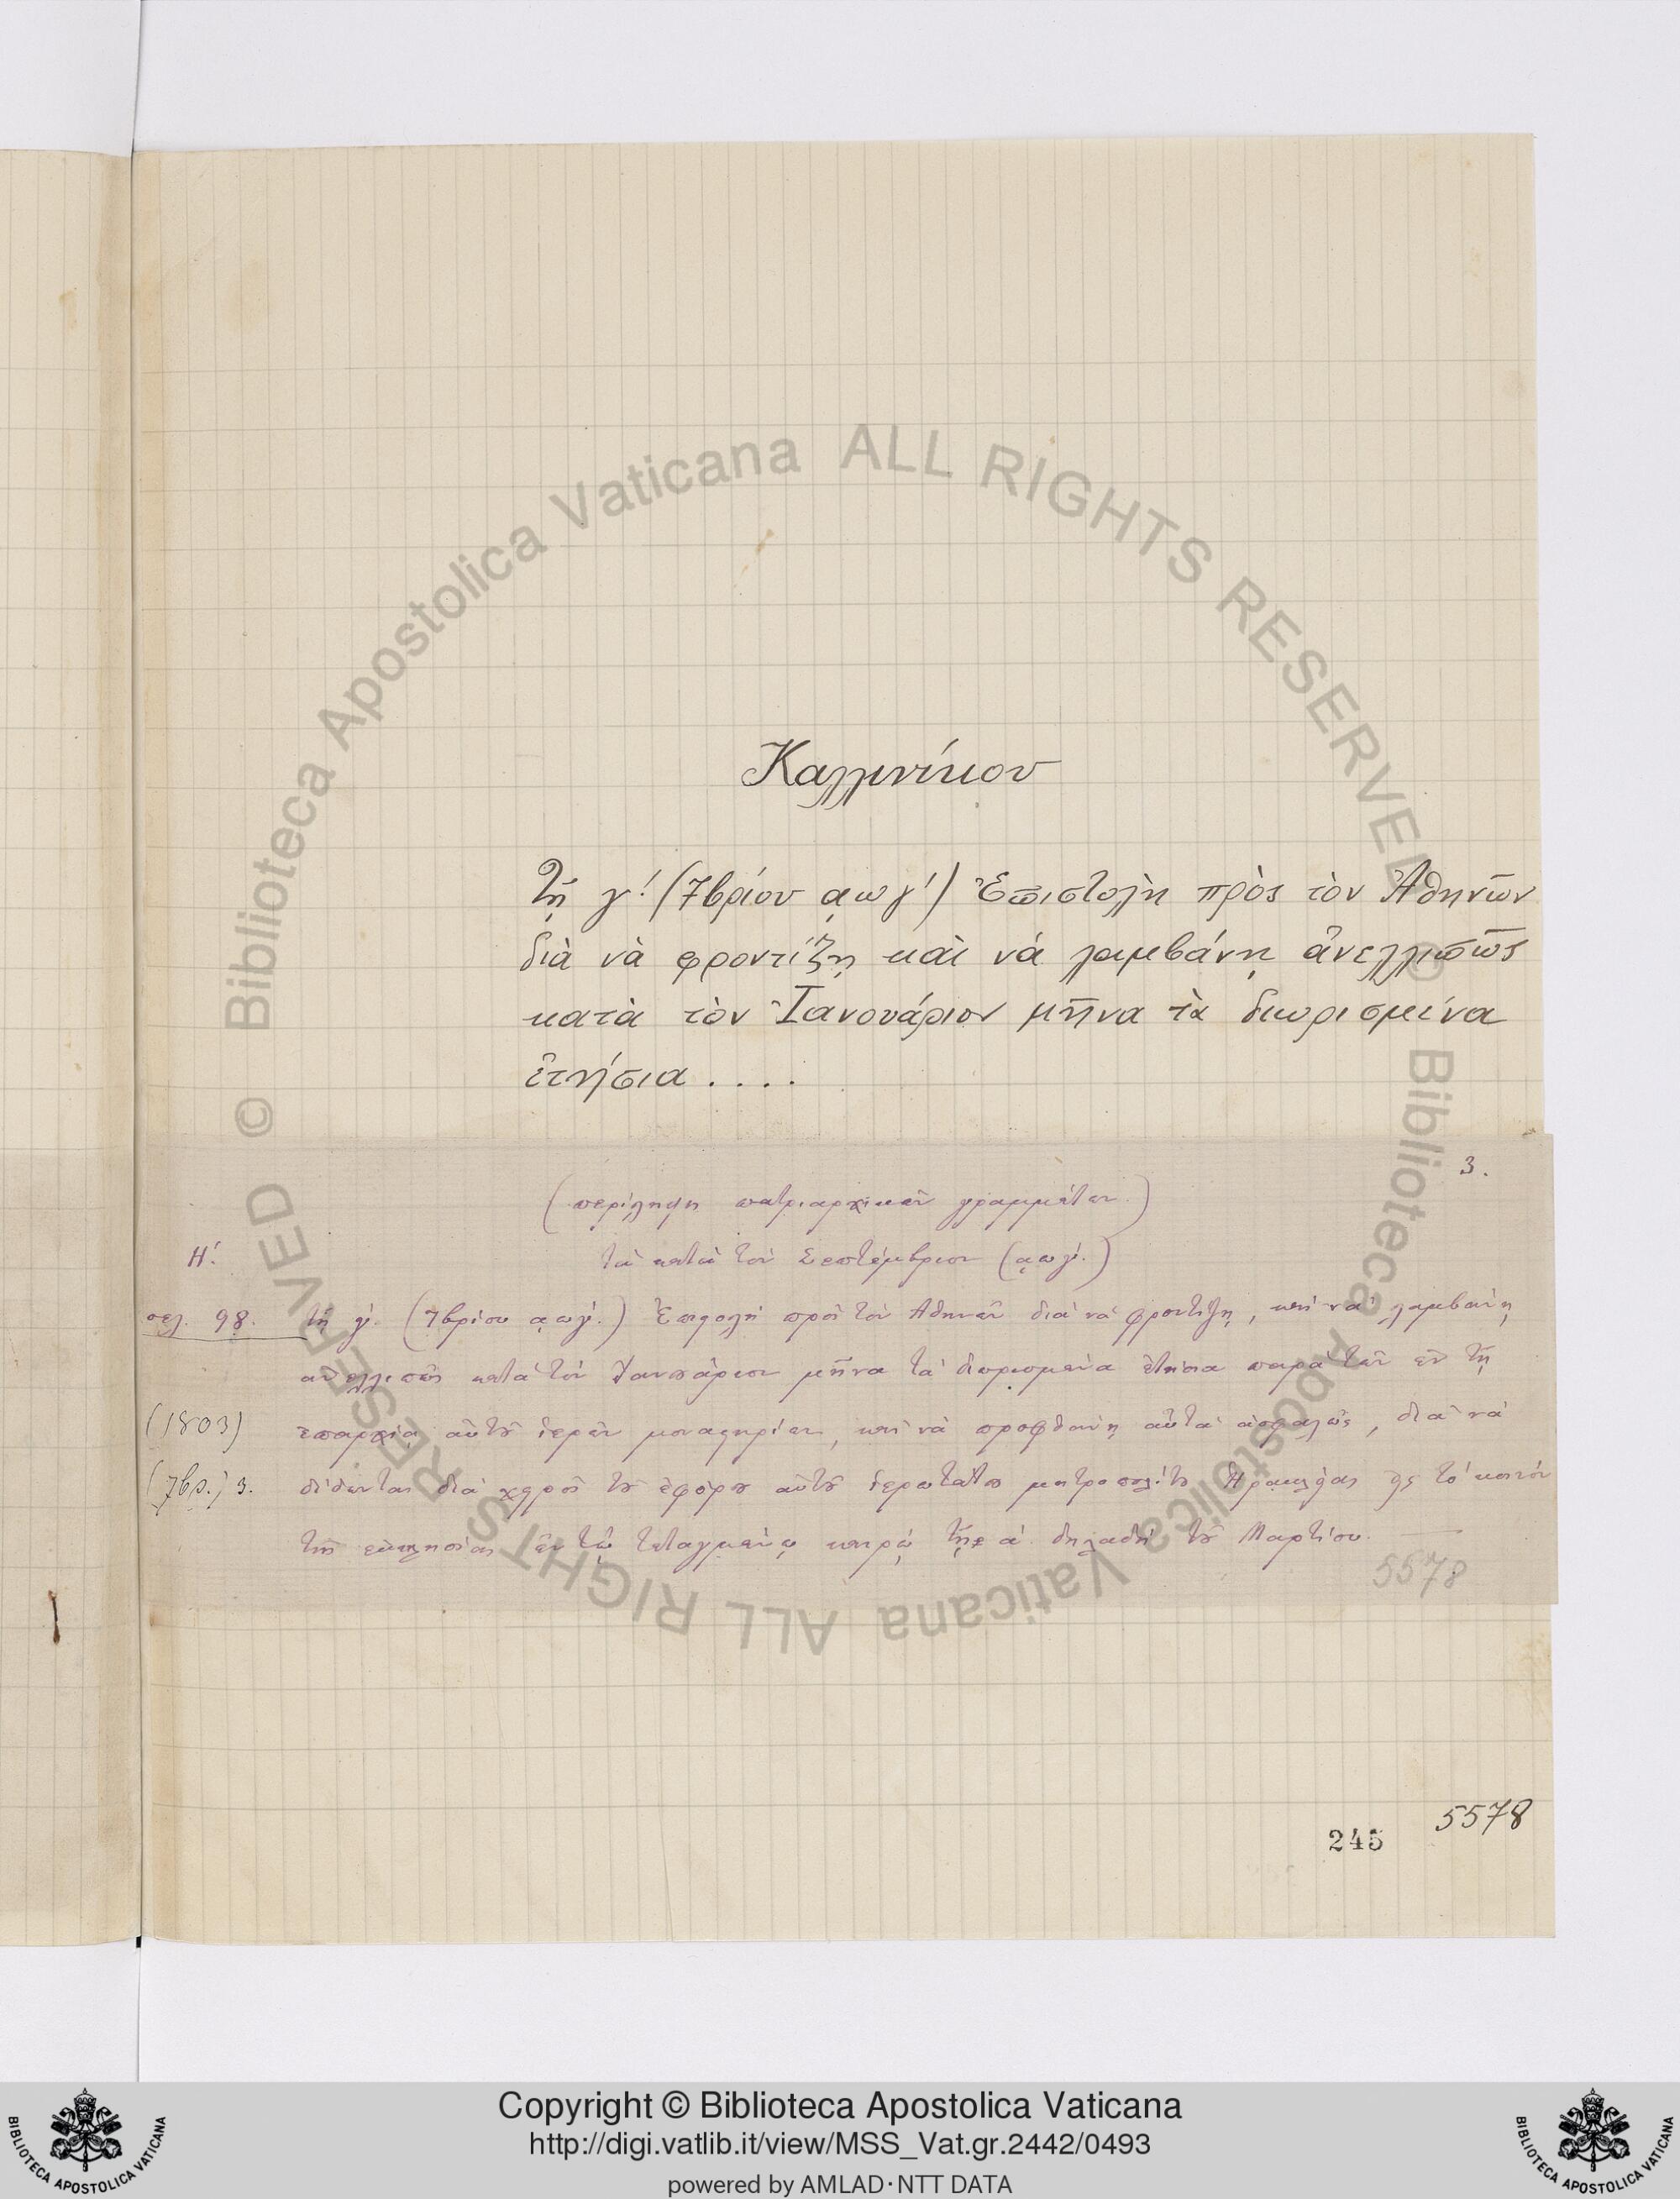 Καλλινίκου
Τῇ γ΄. (7βρίου ͵αωγ΄) Ἐπιστολὴ πρὸς τὸν Ἀθηνῶν
διὰ νὰ φροντίζῃ καὶ νὰ λαμβάνῃ ἀνελλιπῶς
κατὰ τὸν Ἰανουάριον μῆνα τὰ διωρισμένα
ἐτήσια . . . .
3.
(περίληψη πατριαρχικῶν γραμμάτων.)
Η΄. τὰ κατὰ τὸν Σεπτέμβριον (͵αωγ΄.)
σελ. 98. τῇ γ΄. (7βρίου ͵αωγ΄.) Ἐπιστολὴ πρὸς τὸν Ἀθηνῶν διὰ νὰ φροντίζῃ, καὶ νὰ λαμβάνῃ
ἀνελλιπῶς κατὰ τὸν Ἰανουάριον μῆνα τὰ διωρισμένα ἐτήσια παρὰ τῶν ἐν τῇ
(1803) ἐπαρχίᾳ αὐτοῦ ἱερῶν μοναστηρίων, καὶ νὰ προφθάνῃ αὐτὰ ἀσφαλῶς, διὰ νὰ
(7βρ.) 3. δίδωνται διὰ χειρὸς τοῦ ἐφόρου αὐτοῦ ἱερωτάτου μητροπολίτου Ἡρακλείας εἰς τὸ κοινὸν
τῆς ἐκκλησίας ἐν τῷ τεταγμένῳ καιρῷ τῇ α΄ δηλαδὴ τοῦ Μαρτίου.
5578
245 5578
Copyright © Biblioteca Apostolica Vaticana
http://digi.vatlib.it/view/MSS_Vat.gr.2442/0493
powered by AMLAD·NTT DATA
BIBLIOTECA APOSTOLICA VATICANA
BIBLIOTECA APOSTOLICA VATICANA
© Biblioteca Apostolica Vaticana ALL RIGHTS RESERVED
© Biblioteca Apostolica Vaticana ALL RIGHTS RESERVED